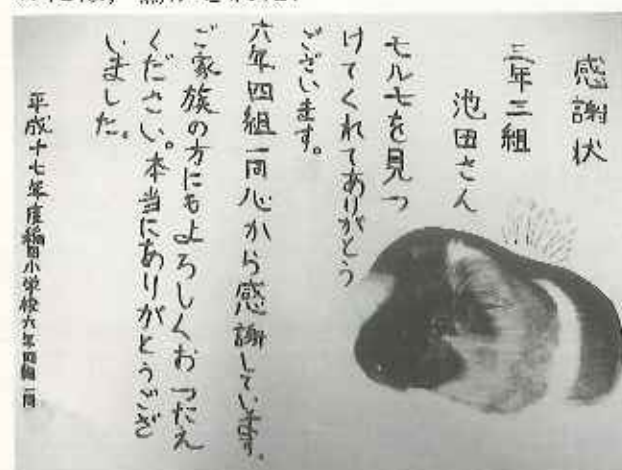 感謝状
三年三組
池田さん
モルモを見つ
けてくれてありがとう
ございます。
六年四組一同心から感謝しています。
ご家族の方にもよろしくおつたえ
ください。本当にありがとうござ
いました。
平成十七年度 小学校六年四組一同